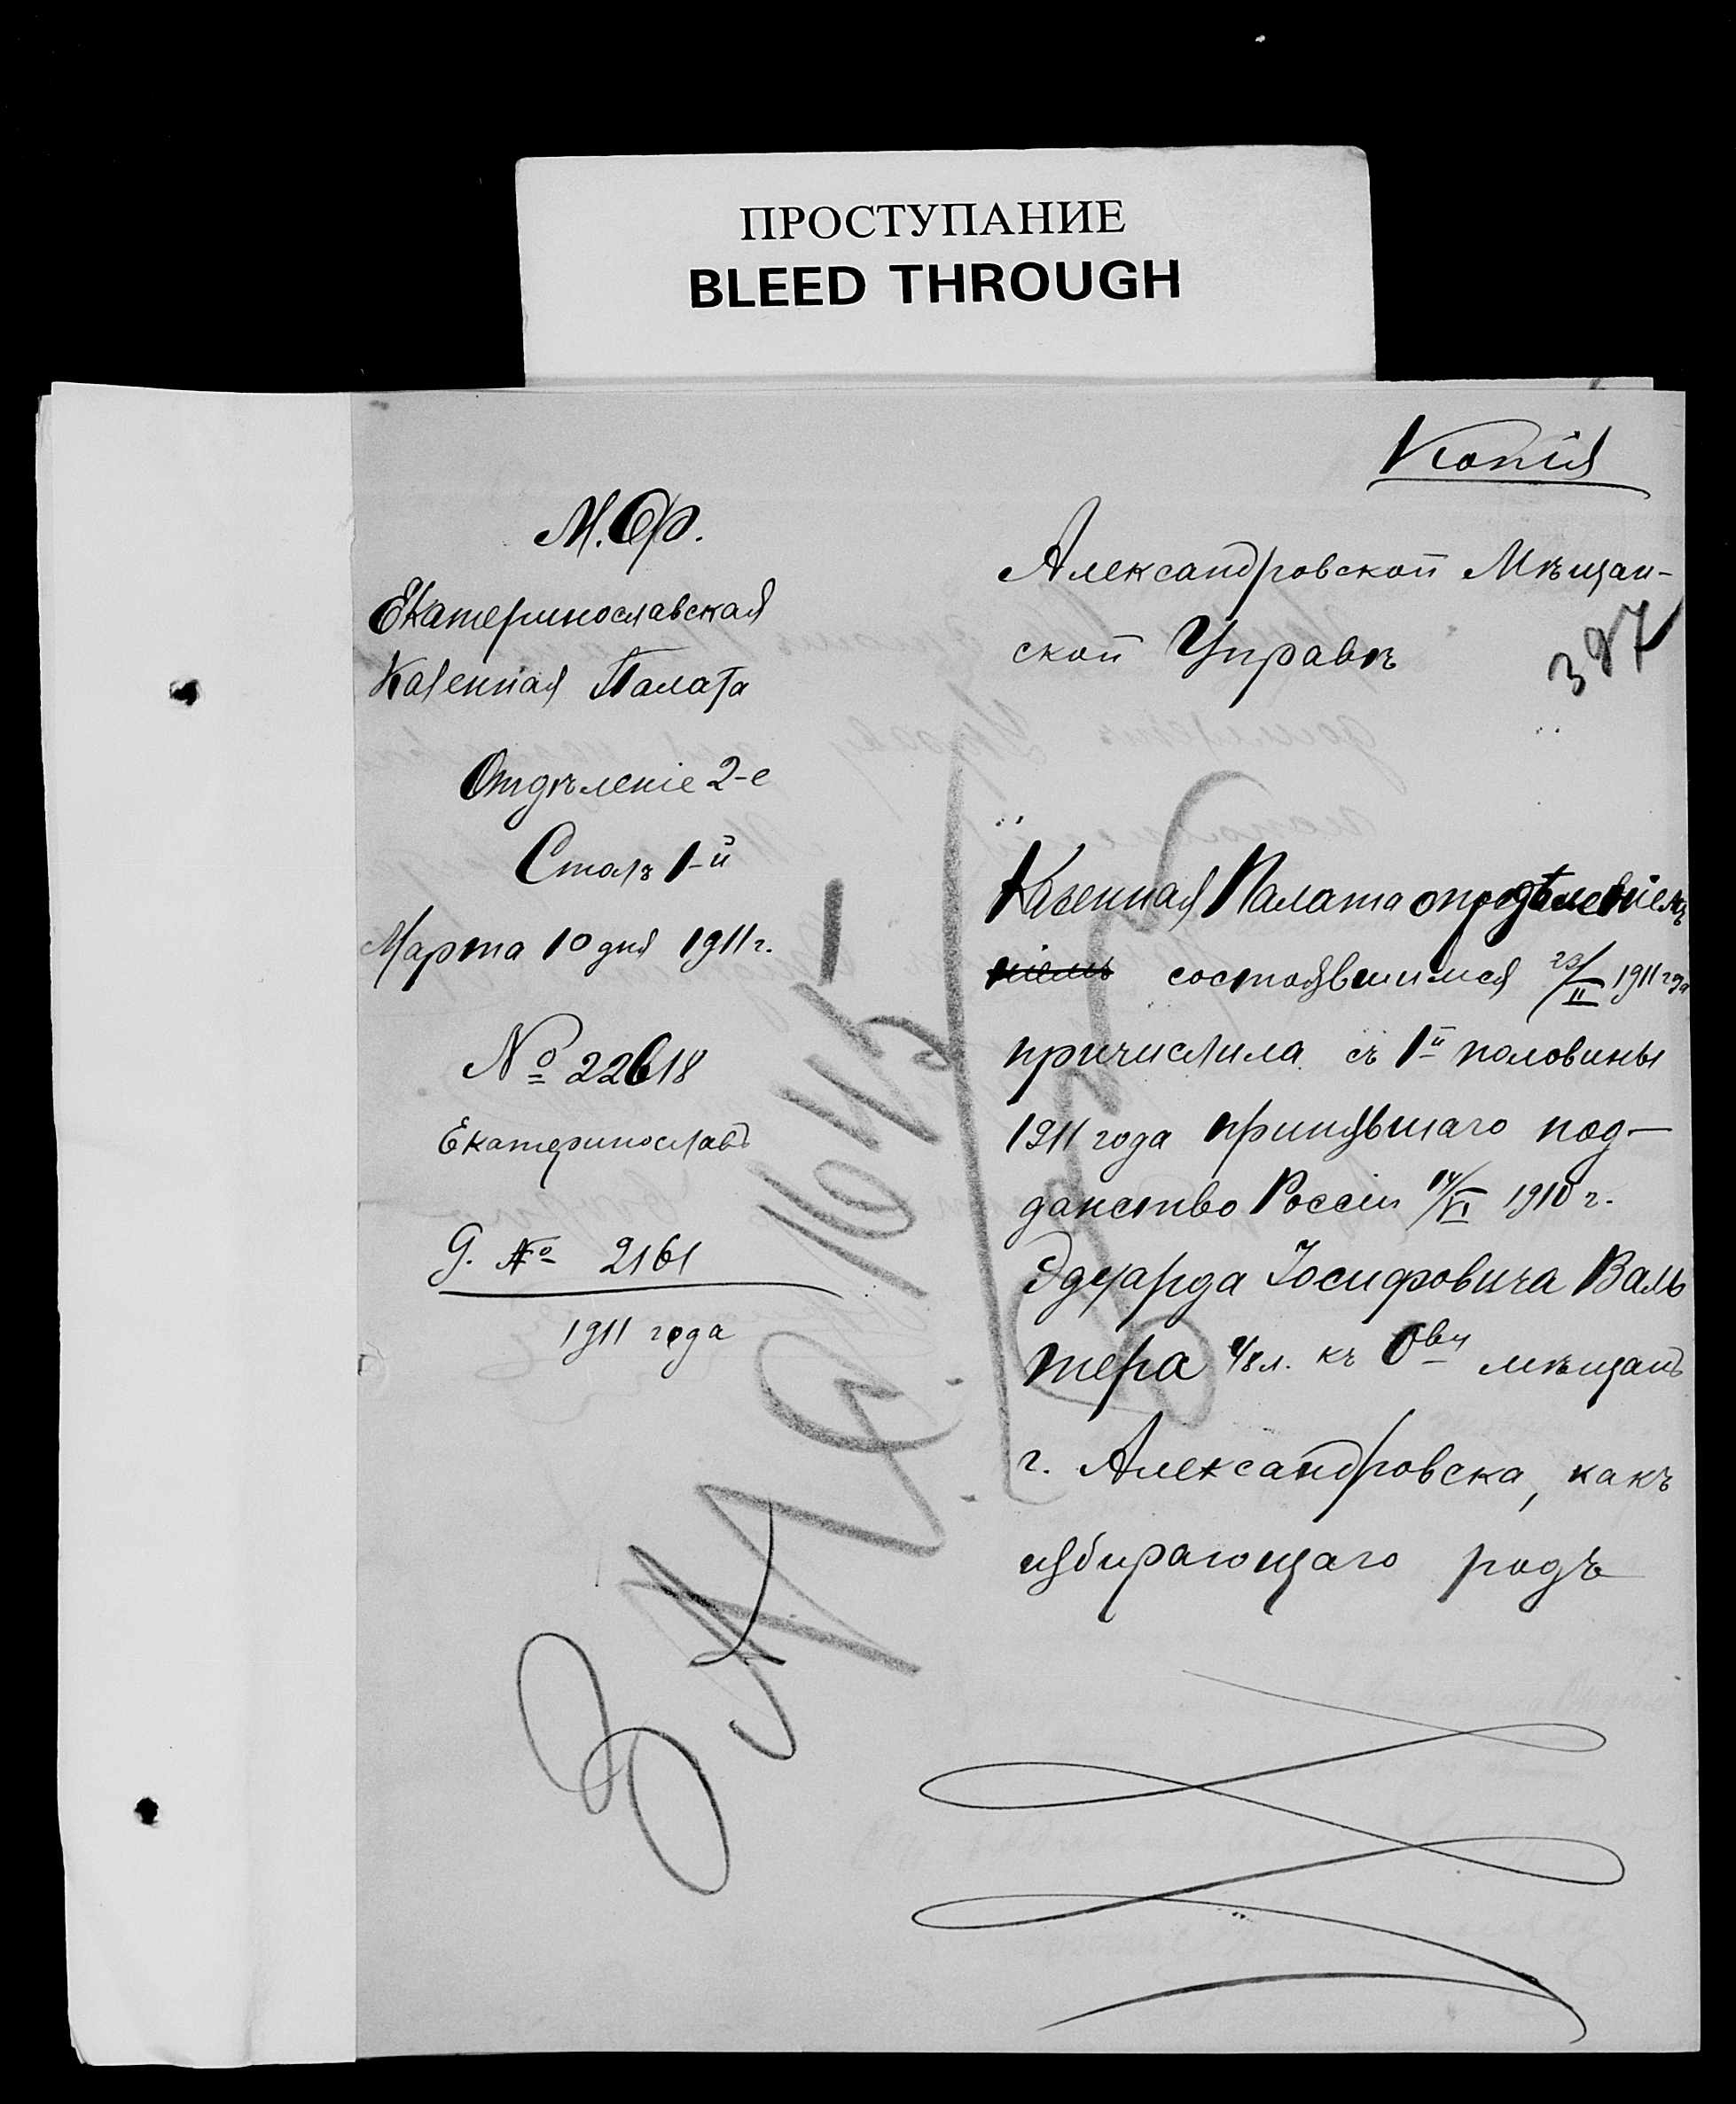 ПРОСТУПАНИЕ
BLEED THROUGH
Копія
М.Ф.
Екатеринославская
Казенная Палата
Отдѣленіе 2-е
Столъ 1-й
Марта 10 дня 1911 г.
№ 22618
Екатеринославъ
Д. № 2161
1911 года
Александровской Мѣщан-
ской Управѣ
387
Казенная Палата опредѣленіемъ
ніемъ состоявшимся 23/II 1911 года
причислила съ 1й половины
1911 года принявшаго под-
данство Россіи 14/VI 1910 г.
Эдуарда Іосифовича Валь
тера л. къ Ову мѣщанъ
г. Александровска, какъ
избирающаго родъ